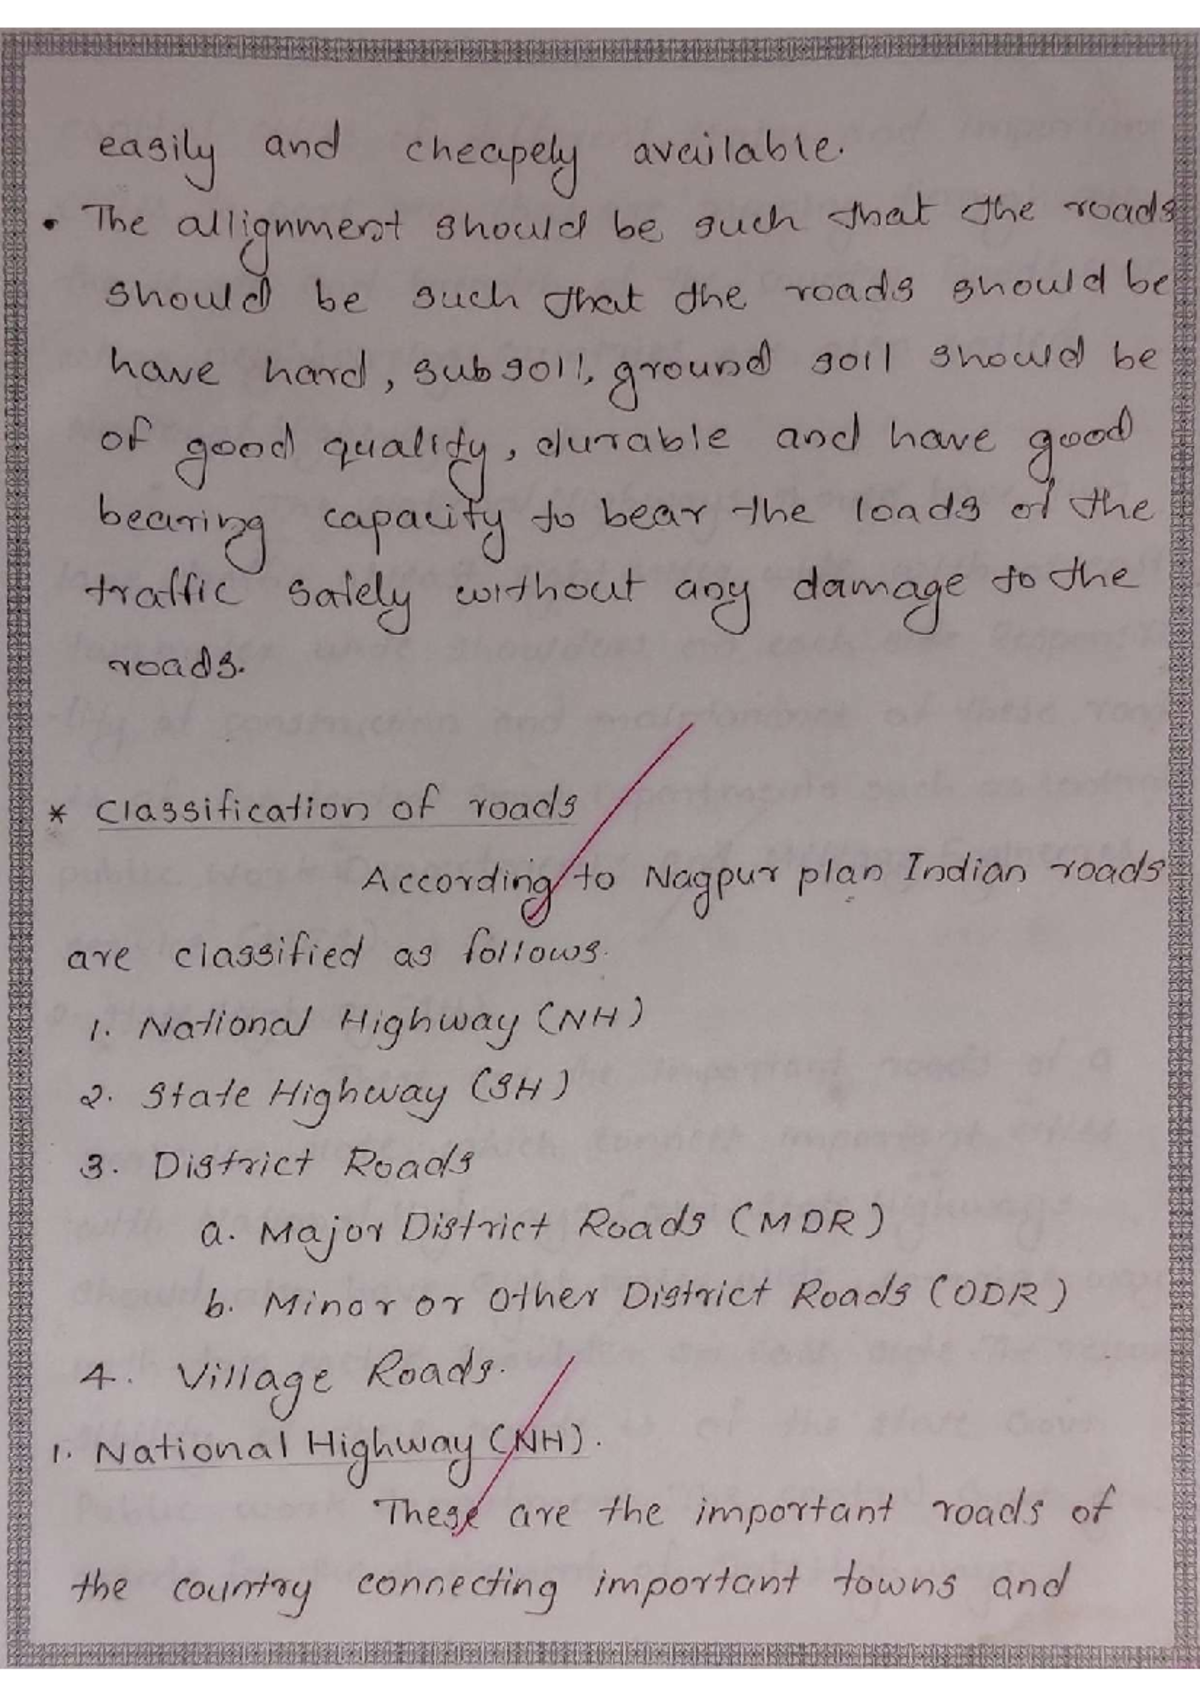 easily and cheapely available.
• The allignment should be such that the roads
should be such that the roads should be
have hard, subsoil, ground soil should be
of good quality, durable and have good
bearing capacity to bear the loads of the
traffic safely without any damage to the
roads.
* Classification of roads
According to Nagpur plan Indian roads
are classified as follows.
1. National Highway (NH)
2. State Highway (SH)
3. District Roads
a. Major District Roads (MDR)
b. Minor or Other District Roads (ODR)
4. Village Roads.
1. National Highway (NH).
These are the important roads of
the country connecting important towns and